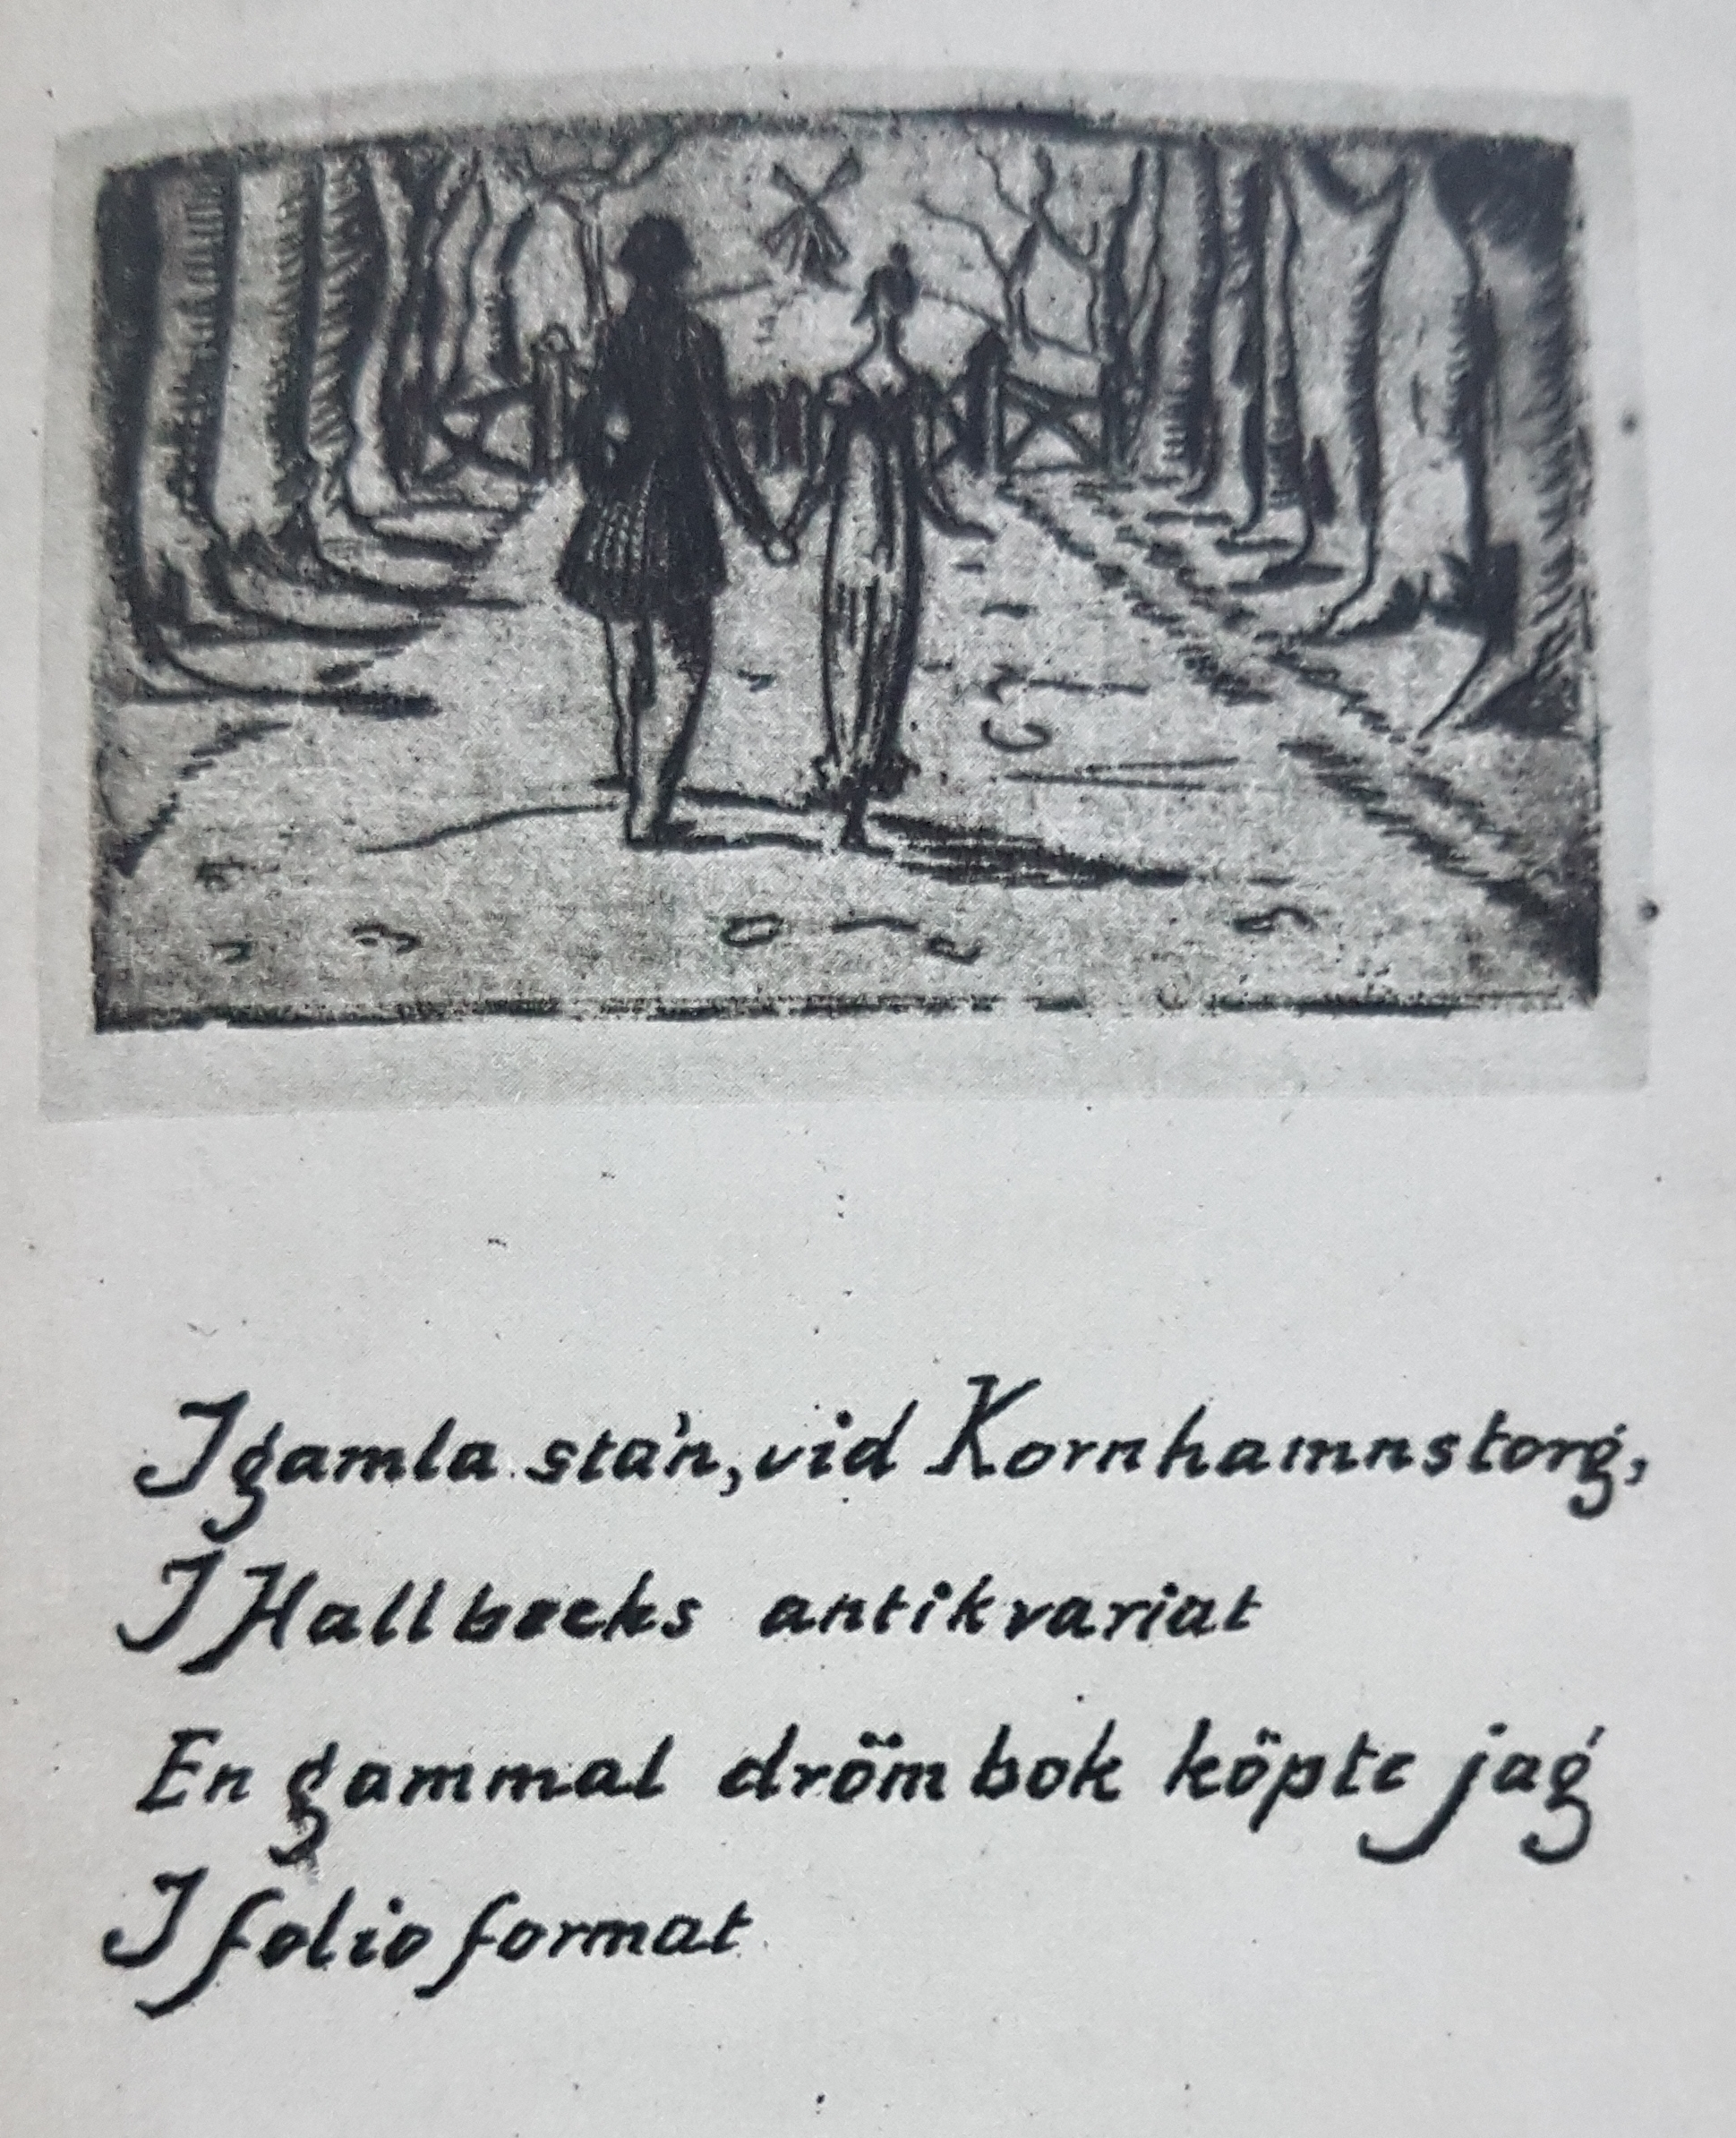 I gamla sta'n, vid Kornhamnstorg,
I Hallbecks antikvariat
En gammal drömbok köpte jag
I folioformat